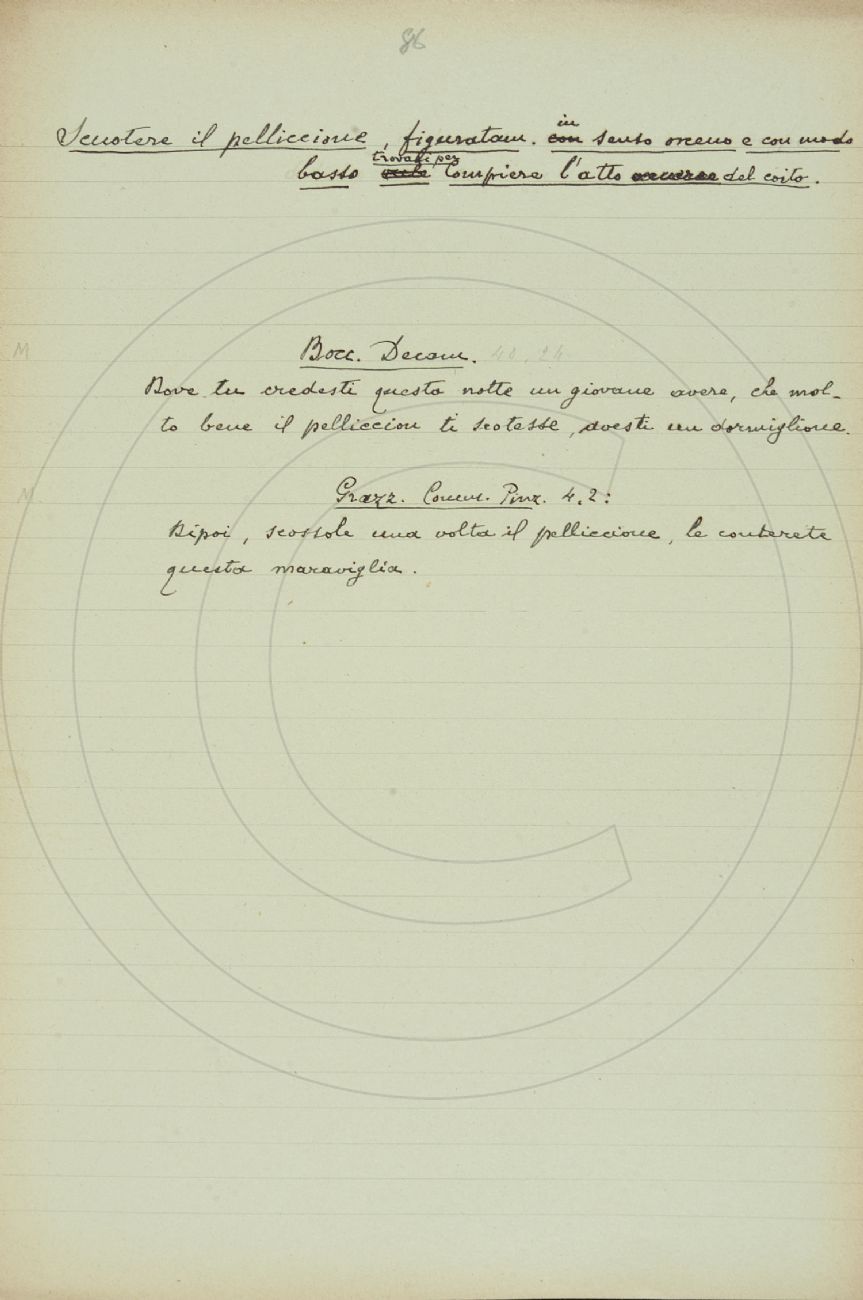 86
Scuotere il pelliccione, figuratam. in con senso osceno e con modo
basso trovasi per vale Compiere l'atto venereo del coito.
M Bocc. Decam. 40, 24
Dove tu credesti questa notte un giovane avere, che mol-
to bene il pelliccion ti scotesse, avesti un dormiglione.
M Grazz. Comm. Pinz. 4. 2:
Dipoi, scossole una volta il pelliccione, le conterete
questa maraviglia.